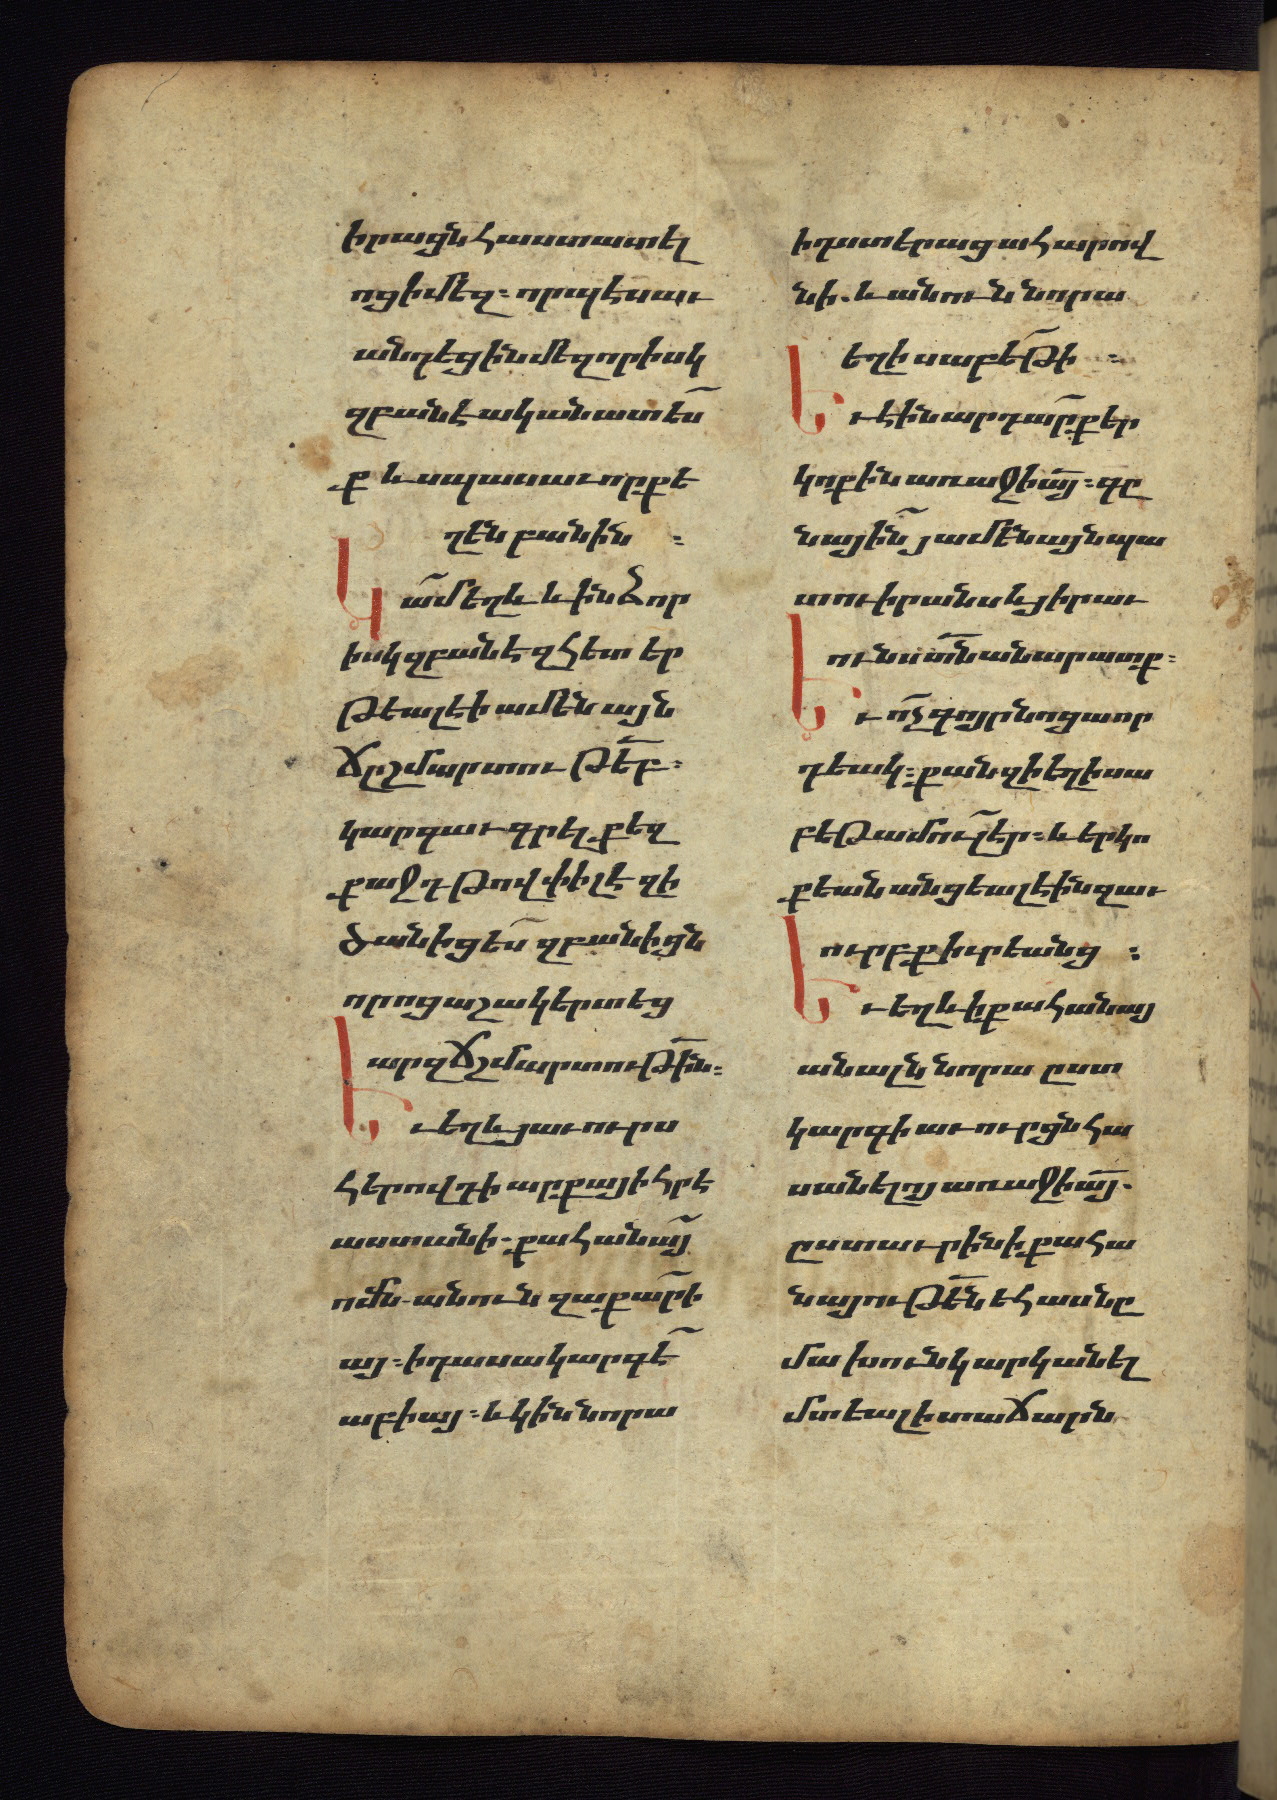 իրացն հաստատել
ոցի մեզ։ որպէս աւ
անդեցին մեզ որ ի սկ
զբանէ ականատես̄
ք և սպասաւորք ե
ղեն բանին ։
Կ
ամ̄ եղև և ինձ որ
ի սկզբանէ զհետ եր
թեալ էի ամենայն
ճըշմարտութե̄բ։
կարգաւ գրել քեզ
քաջդ թովփիլէ զի
ծանիցես̄ զբանիցն
որոց աշակերտեց
ար զճշմարտութի̄ն։
Ե
ւ եղև յաւուրս
հերովդի արքայի հրէ
աստանի. քահանայ̄
ոմն անուն զաքարի̄
այ։ ի դասակարգէ̄
աբիայ։ և կին նորա
ի դստերաց ահարով
նի. և անուն նորա
եղիսաբեթ̄ ի ։
Ե
ւ էին արդար̄ք եր
կոքին առաջի ա̄յ։ գը
նային̄ յամենայն պա
տուիրանս և յիրաւ
ունս տ̄ն անարատք։
Ե
ւ ոչ̄ գոյր նոցա որ
դեակ։ քանզի եղիսա
բեթ ամուլ̄ էր։ և երկո
քեան անցեալ էին զաւ
ուրբք իւրեանց ։
Ե
ւ եղև ի քահանայ
անալն նորա ըստ
կարգի աւուրցն հա
սանելոյ առաջի ա̄յ.
ըստ աւրինի քահա
նայութե̄ն եհաս նը
մա խունկ արկանել
մտեալ ի տաճարն